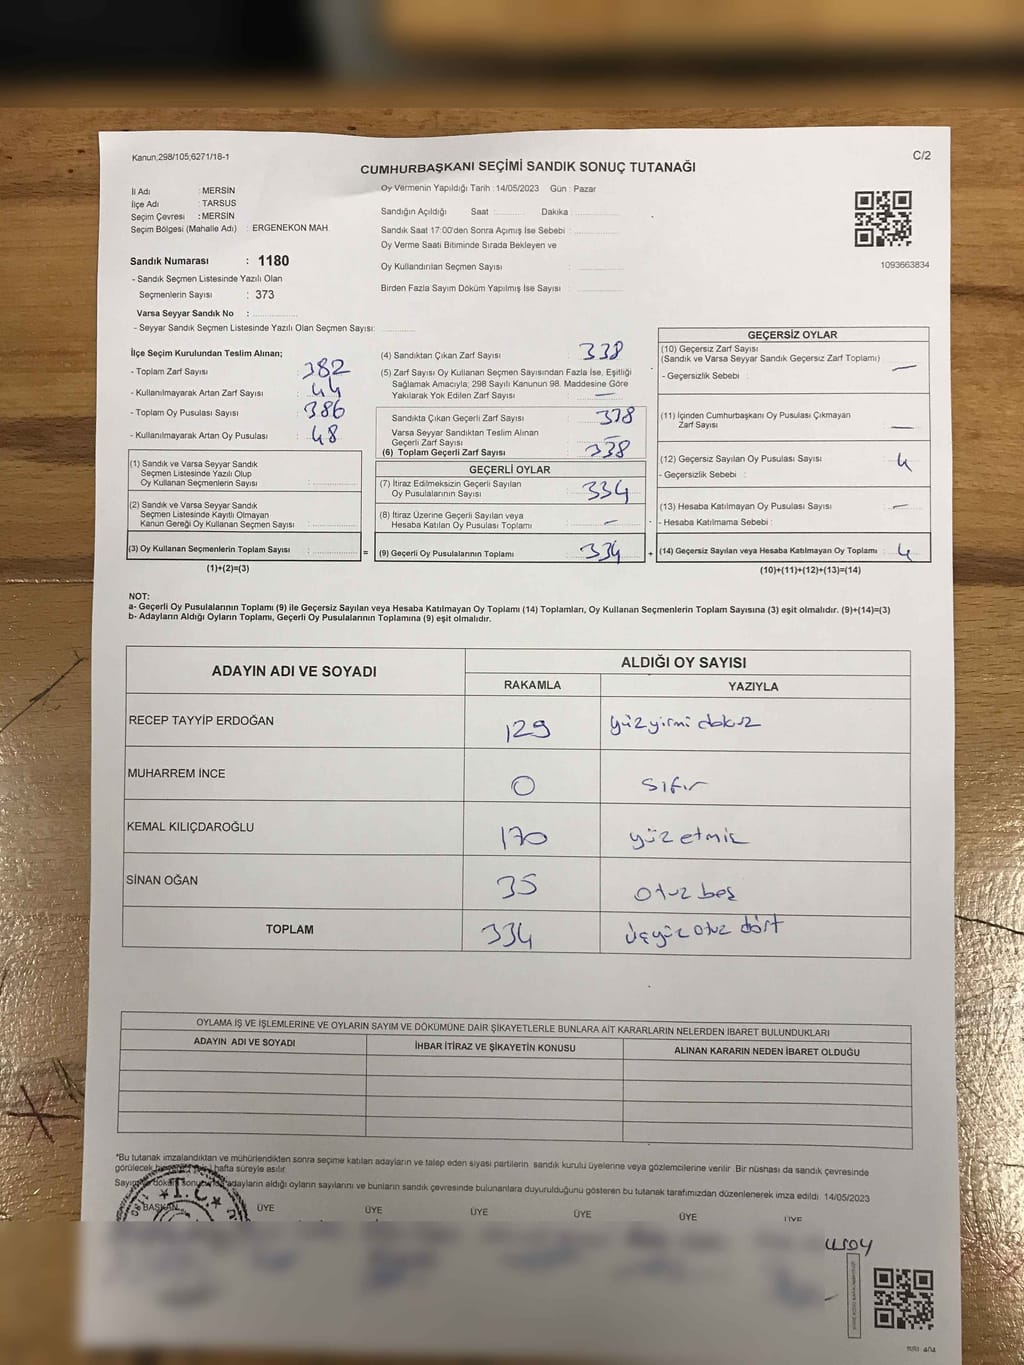 Kanun;298/105;6271/18-1
C/2
CUMHURBAŞKANI SEÇİMİ SANDIK SONUÇ TUTANAĞI
İl Adı : MERSİN
İlçe Adı : TARSUS
Seçim Çevresi : MERSİN
Seçim Bölgesi (Mahalle Adı) : ERGENEKON MAH.
Sandık Numarası : 1180
- Sandık Seçmen Listesinde Yazılı Olan
Seçmenlerin Sayısı : 373
Varsa Seyyar Sandık No :
- Seyyar Sandık Seçmen Listesinde Yazılı Olan Seçmen Sayısı:
Oy Vermenin Yapıldığı Tarih : 14/05/2023 Gün : Pazar
Sandığın Açıldığı Saat : Dakika :
Sandık Saat 17:00'den Sonra Açımış İse Sebebi :
Oy Verme Saati Bitiminde Sırada Bekleyen ve
Oy Kullandırılan Seçmen Sayısı :
Birden Fazla Sayım Döküm Yapılmış İse Sayısı :
1093663834
İlçe Seçim Kurulundan Teslim Alınan;
- Toplam Zarf Sayısı : 382
- Kullanılmayarak Artan Zarf Sayısı : 44
- Toplam Oy Pusulası Sayısı : 386
- Kullanılmayarak Artan Oy Pusulası : 48
(1) Sandık ve Varsa Seyyar Sandık
Seçmen Listesinde Yazılı Olup
Oy Kullanan Seçmenlerin Sayısı :
(2) Sandık ve Varsa Seyyar Sandık
Seçmen Listesinde Kayıtlı Olmayan
Kanun Gereği Oy Kullanan Seçmen Sayısı :
(3) Oy Kullanan Seçmenlerin Toplam Sayısı : =
(1)+(2)=(3)
(4) Sandıktan Çıkan Zarf Sayısı : 338
(5) Zarf Sayısı Oy Kullanan Seçmen Sayısından Fazla İse, Eşitliği
Sağlamak Amacıyla; 298 Sayılı Kanunun 98. Maddesine Göre
Yakılarak Yok Edilen Zarf Sayısı : —
Sandıkta Çıkan Geçerli Zarf Sayısı : 338
Varsa Seyyar Sandıktan Teslim Alınan
Geçerli Zarf Sayısı : —
(6) Toplam Geçerli Zarf Sayısı : 338
GEÇERLİ OYLAR
(7) İtiraz Edilmeksizin Geçerli Sayılan
Oy Pusulalarının Sayısı : 334
(8) İtiraz Üzerine Geçerli Sayılan veya
Hesaba Katılan Oy Pusulası Toplamı : —
(9) Geçerli Oy Pusulalarının Toplamı : 334 +
GEÇERSİZ OYLAR
(10) Geçersiz Zarf Sayısı
(Sandık ve Varsa Seyyar Sandık Geçersiz Zarf Toplamı) : —
- Geçersizlik Sebebi :
(11) İçinden Cumhurbaşkanı Oy Pusulası Çıkmayan
Zarf Sayısı : —
(12) Geçersiz Sayılan Oy Pusulası Sayısı : 4
- Geçersizlik Sebebi :
(13) Hesaba Katılmayan Oy Pusulası Sayısı : —
- Hesaba Katılmama Sebebi :
(14) Geçersiz Sayılan veya Hesaba Katılmayan Oy Toplamı : 4
(10)+(11)+(12)+(13)=(14)
NOT:
a- Geçerli Oy Pusulalarının Toplamı (9) ile Geçersiz Sayılan veya Hesaba Katılmayan Oy Toplamı (14) Toplamları, Oy Kullanan Seçmenlerin Toplam Sayısına (3) eşit olmalıdır. (9)+(14)=(3)
b- Adayların Aldığı Oyların Toplamı, Geçerli Oy Pusulalarının Toplamına (9) eşit olmalıdır.
ADAYIN ADI VE SOYADI
ALDIĞI OY SAYISI
RAKAMLA YAZIYLA
RECEP TAYYİP ERDOĞAN 129 yüzyirmi dokuz
MUHARREM İNCE 0 sıfır
KEMAL KILIÇDAROĞLU 170 yüz etmiş
SİNAN OĞAN 35 otuz beş
TOPLAM 334 üçyüz otuz dört
OYLAMA İŞ VE İŞLEMLERİNE VE OYLARIN SAYIM VE DÖKÜMÜNE DAİR ŞİKAYETLERLE BUNLARA AİT KARARLARIN NELERDEN İBARET BULUNDUKLARI
ADAYIN ADI VE SOYADI İHBAR İTİRAZ VE ŞİKAYETİN KONUSU ALINAN KARARIN NEDEN İBARET OLDUĞU
*Bu tutanak imzalandıktan ve mühürlendikten sonra seçime katılan adayların ve talep eden siyasi partilerin sandık kurulu üyelerine veya gözlemcilerine verilir. Bir nüshası da sandık çevresinde
görülecek hafta süreyle asılır.
adayların aldığı oyların sayılarını ve bunların sandık çevresinde bulunanlara duyurulduğunu gösteren bu tutanak tarafımızdan düzenlenerek imza edildi. 14/05/2023
T.C.
BAŞKAN ÜYE ÜYE ÜYE ÜYE ÜYE ÜYE